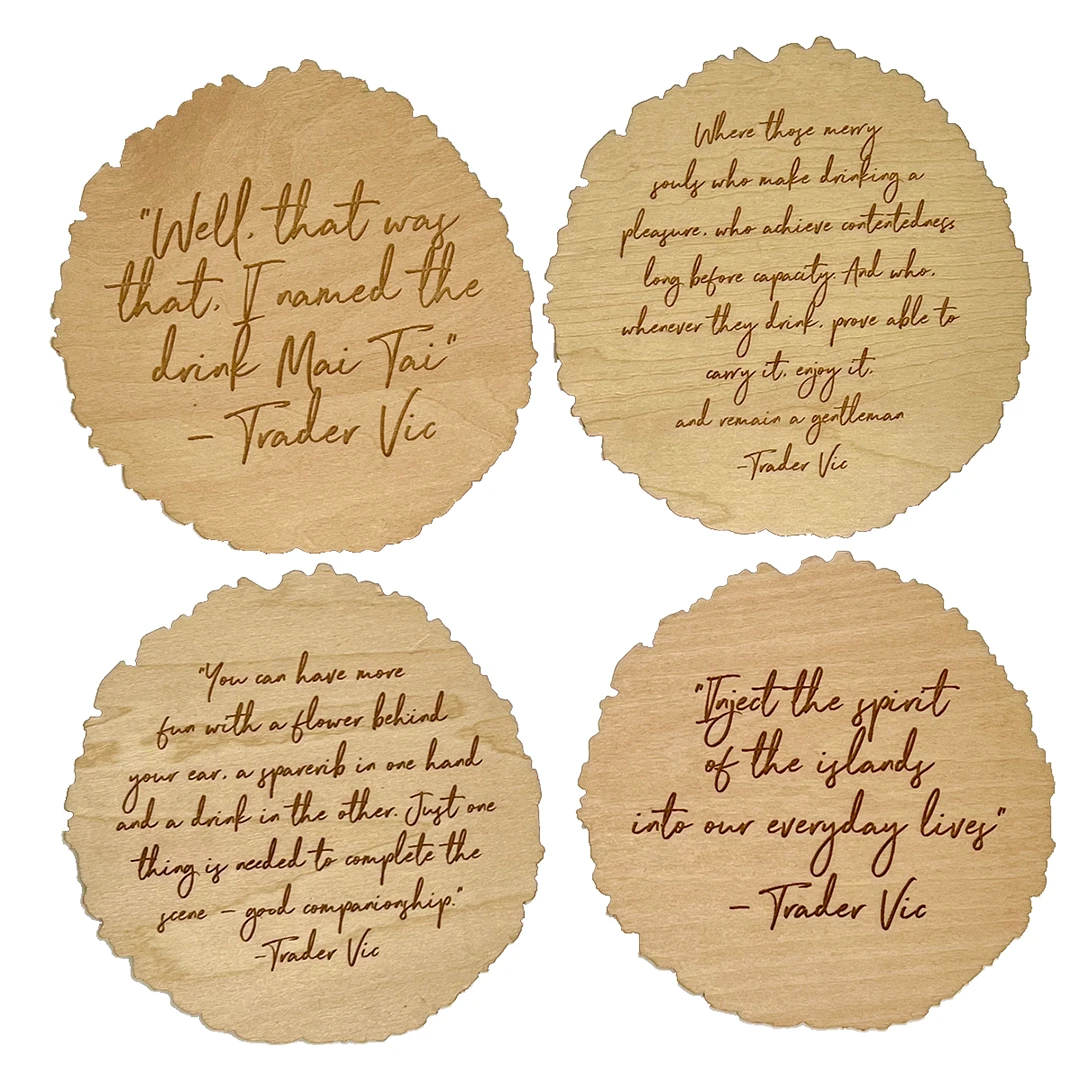 "Well, that was
that, I named the
drink Mai Tai"
– Trader Vic
Where those merry
souls who make drinking a
pleasure, who achieve contentedness
long before capacity. And who,
whenever they drink, prove able to
carry it, enjoy it,
and remain a gentleman
-Trader Vic
"You can have more
fun with a flower behind
your ear, a sparerib in one hand
and a drink in the other. Just one
thing is needed to complete the
scene – good companionship."
-Trader Vic
"Inject the spirit
of the islands
into our everyday lives"
– Trader Vic